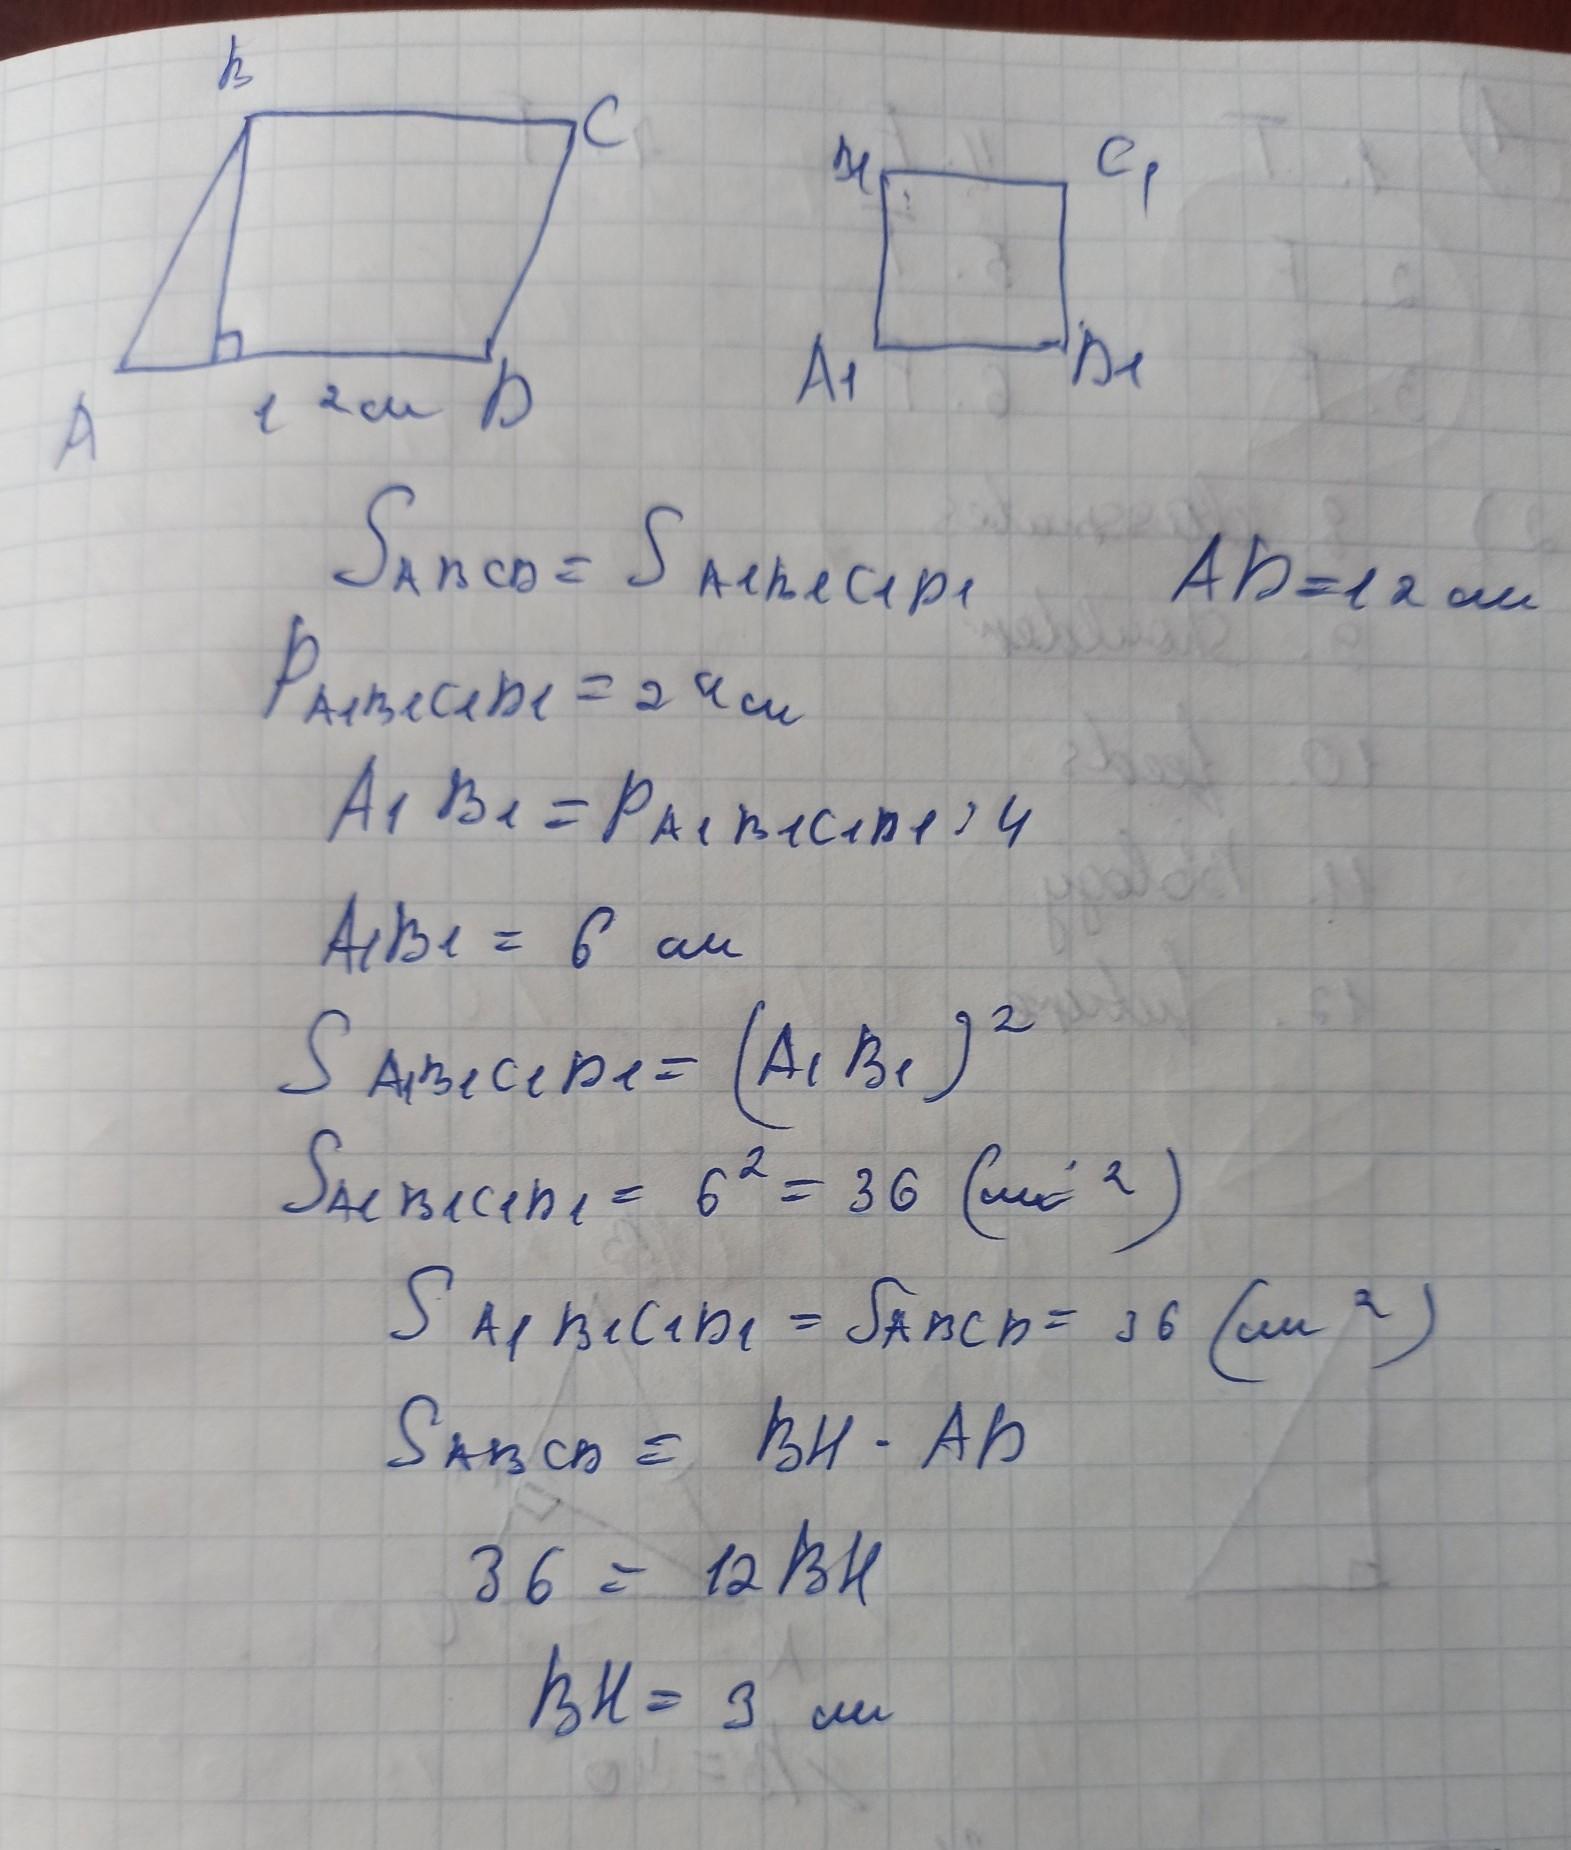 B C
B1 C1
A1 D1
A 12 см D
SABCD = SA1B1C1D1 AD=12 см
PA1B1C1D1 = 24 см
A1B1 = PA1B1C1D1 : 4
A1B1 = 6 см
SA1B1C1D1 = (A1B1)²
SA1B1C1D1 = 6² = 36 (см²)
SA1B1C1D1 = SABCD = 36 (см²)
SABCD = BH · AD
36 = 12BH
BH = 3 см